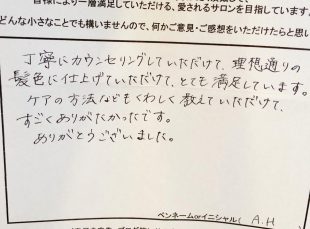 皆様により一層満足していただける、愛されるサロンを目指しています。
どんな小さなことでも構いませんので、何かご意見・ご感想をいただけたらと思い
丁寧にカウンセリングしていただけて、理想通りの
髪色に仕上げていただけて、とても満足しています。
ケアの方法などもくわしく教えていただけて、
すごくありがたかったです。
ありがとうございました。
ペンネームorイニシャル( A.H